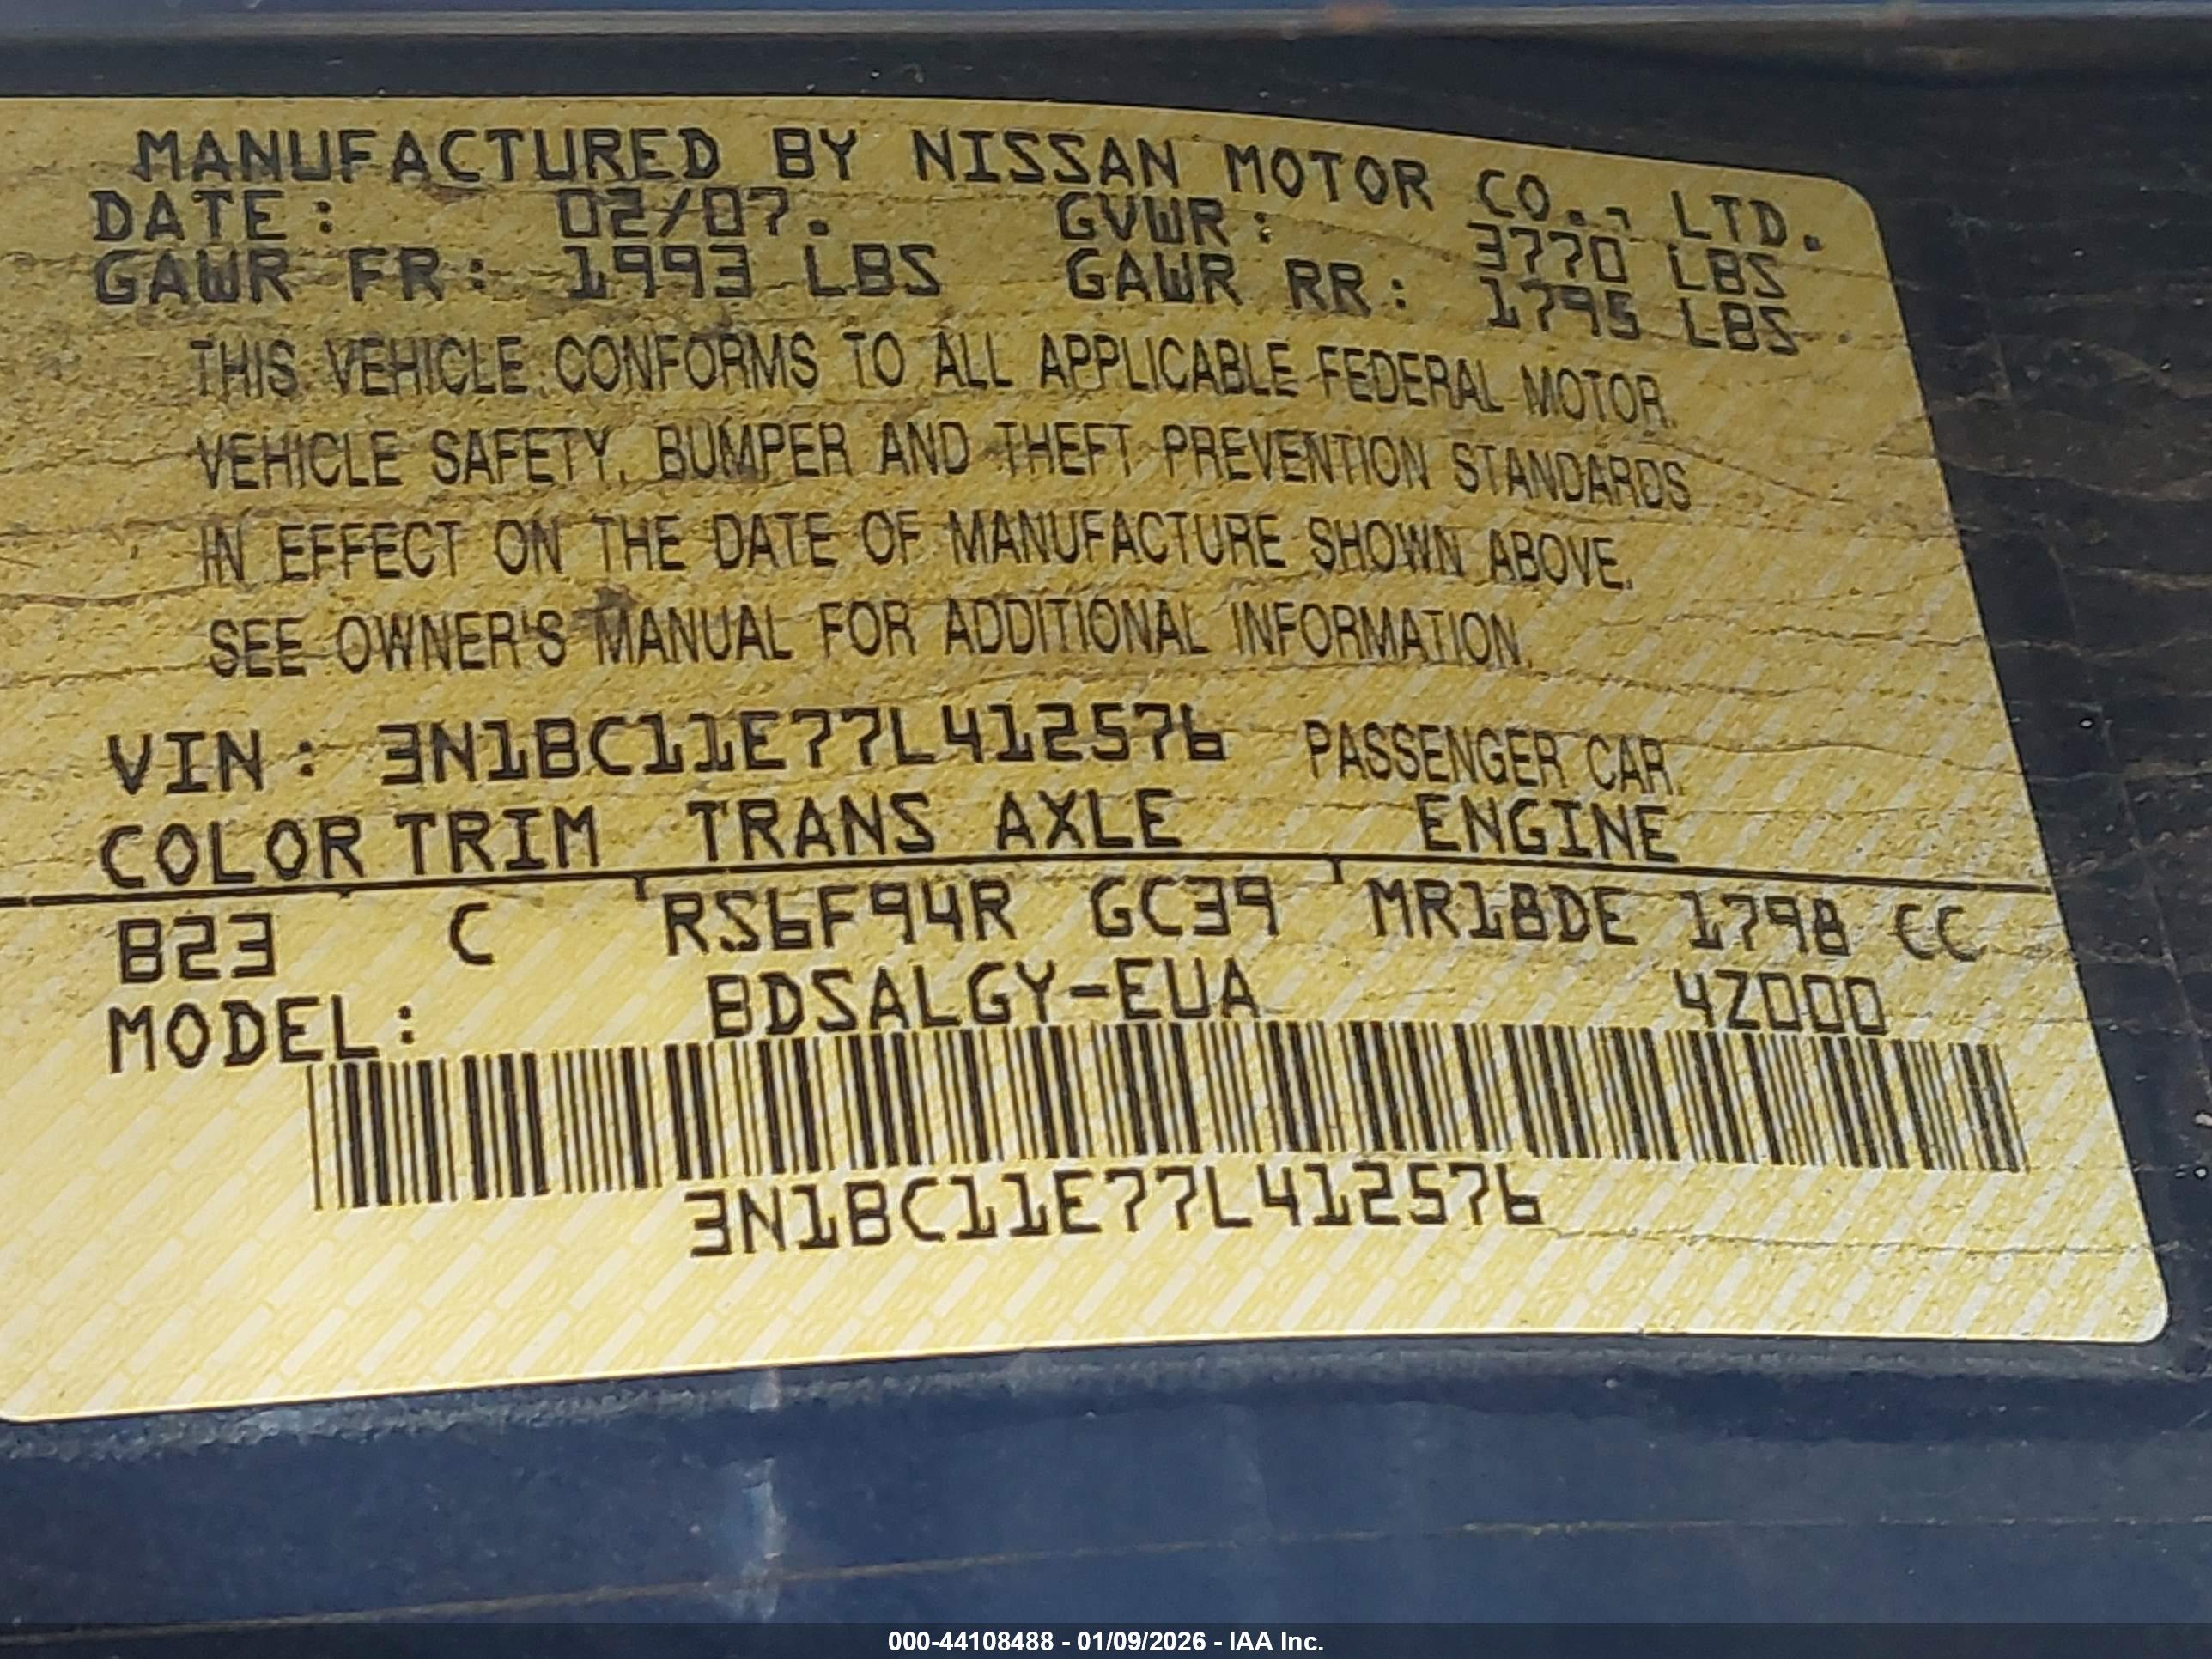 MANUFACTURED BY NISSAN MOTOR CO., LTD.
DATE: 02/07. GVWR: 3770 LBS
GAWR FR: 1993 LBS GAWR RR: 1795 LBS
THIS VEHICLE CONFORMS TO ALL APPLICABLE FEDERAL MOTOR
VEHICLE SAFETY, BUMPER AND THEFT PREVENTION STANDARDS
IN EFFECT ON THE DATE OF MANUFACTURE SHOWN ABOVE.
SEE OWNER'S MANUAL FOR ADDITIONAL INFORMATION.
VIN: 3N1BC11E77L412576 PASSENGER CAR.
COLOR TRIM TRANS AXLE ENGINE
B23 C RS6F94R GC39 MR18DE 1798 CC
MODEL: BDSALGY-EUA 4Z000
3N1BC11E77L412576
000-44108488 - 01/09/2026 - IAA Inc.